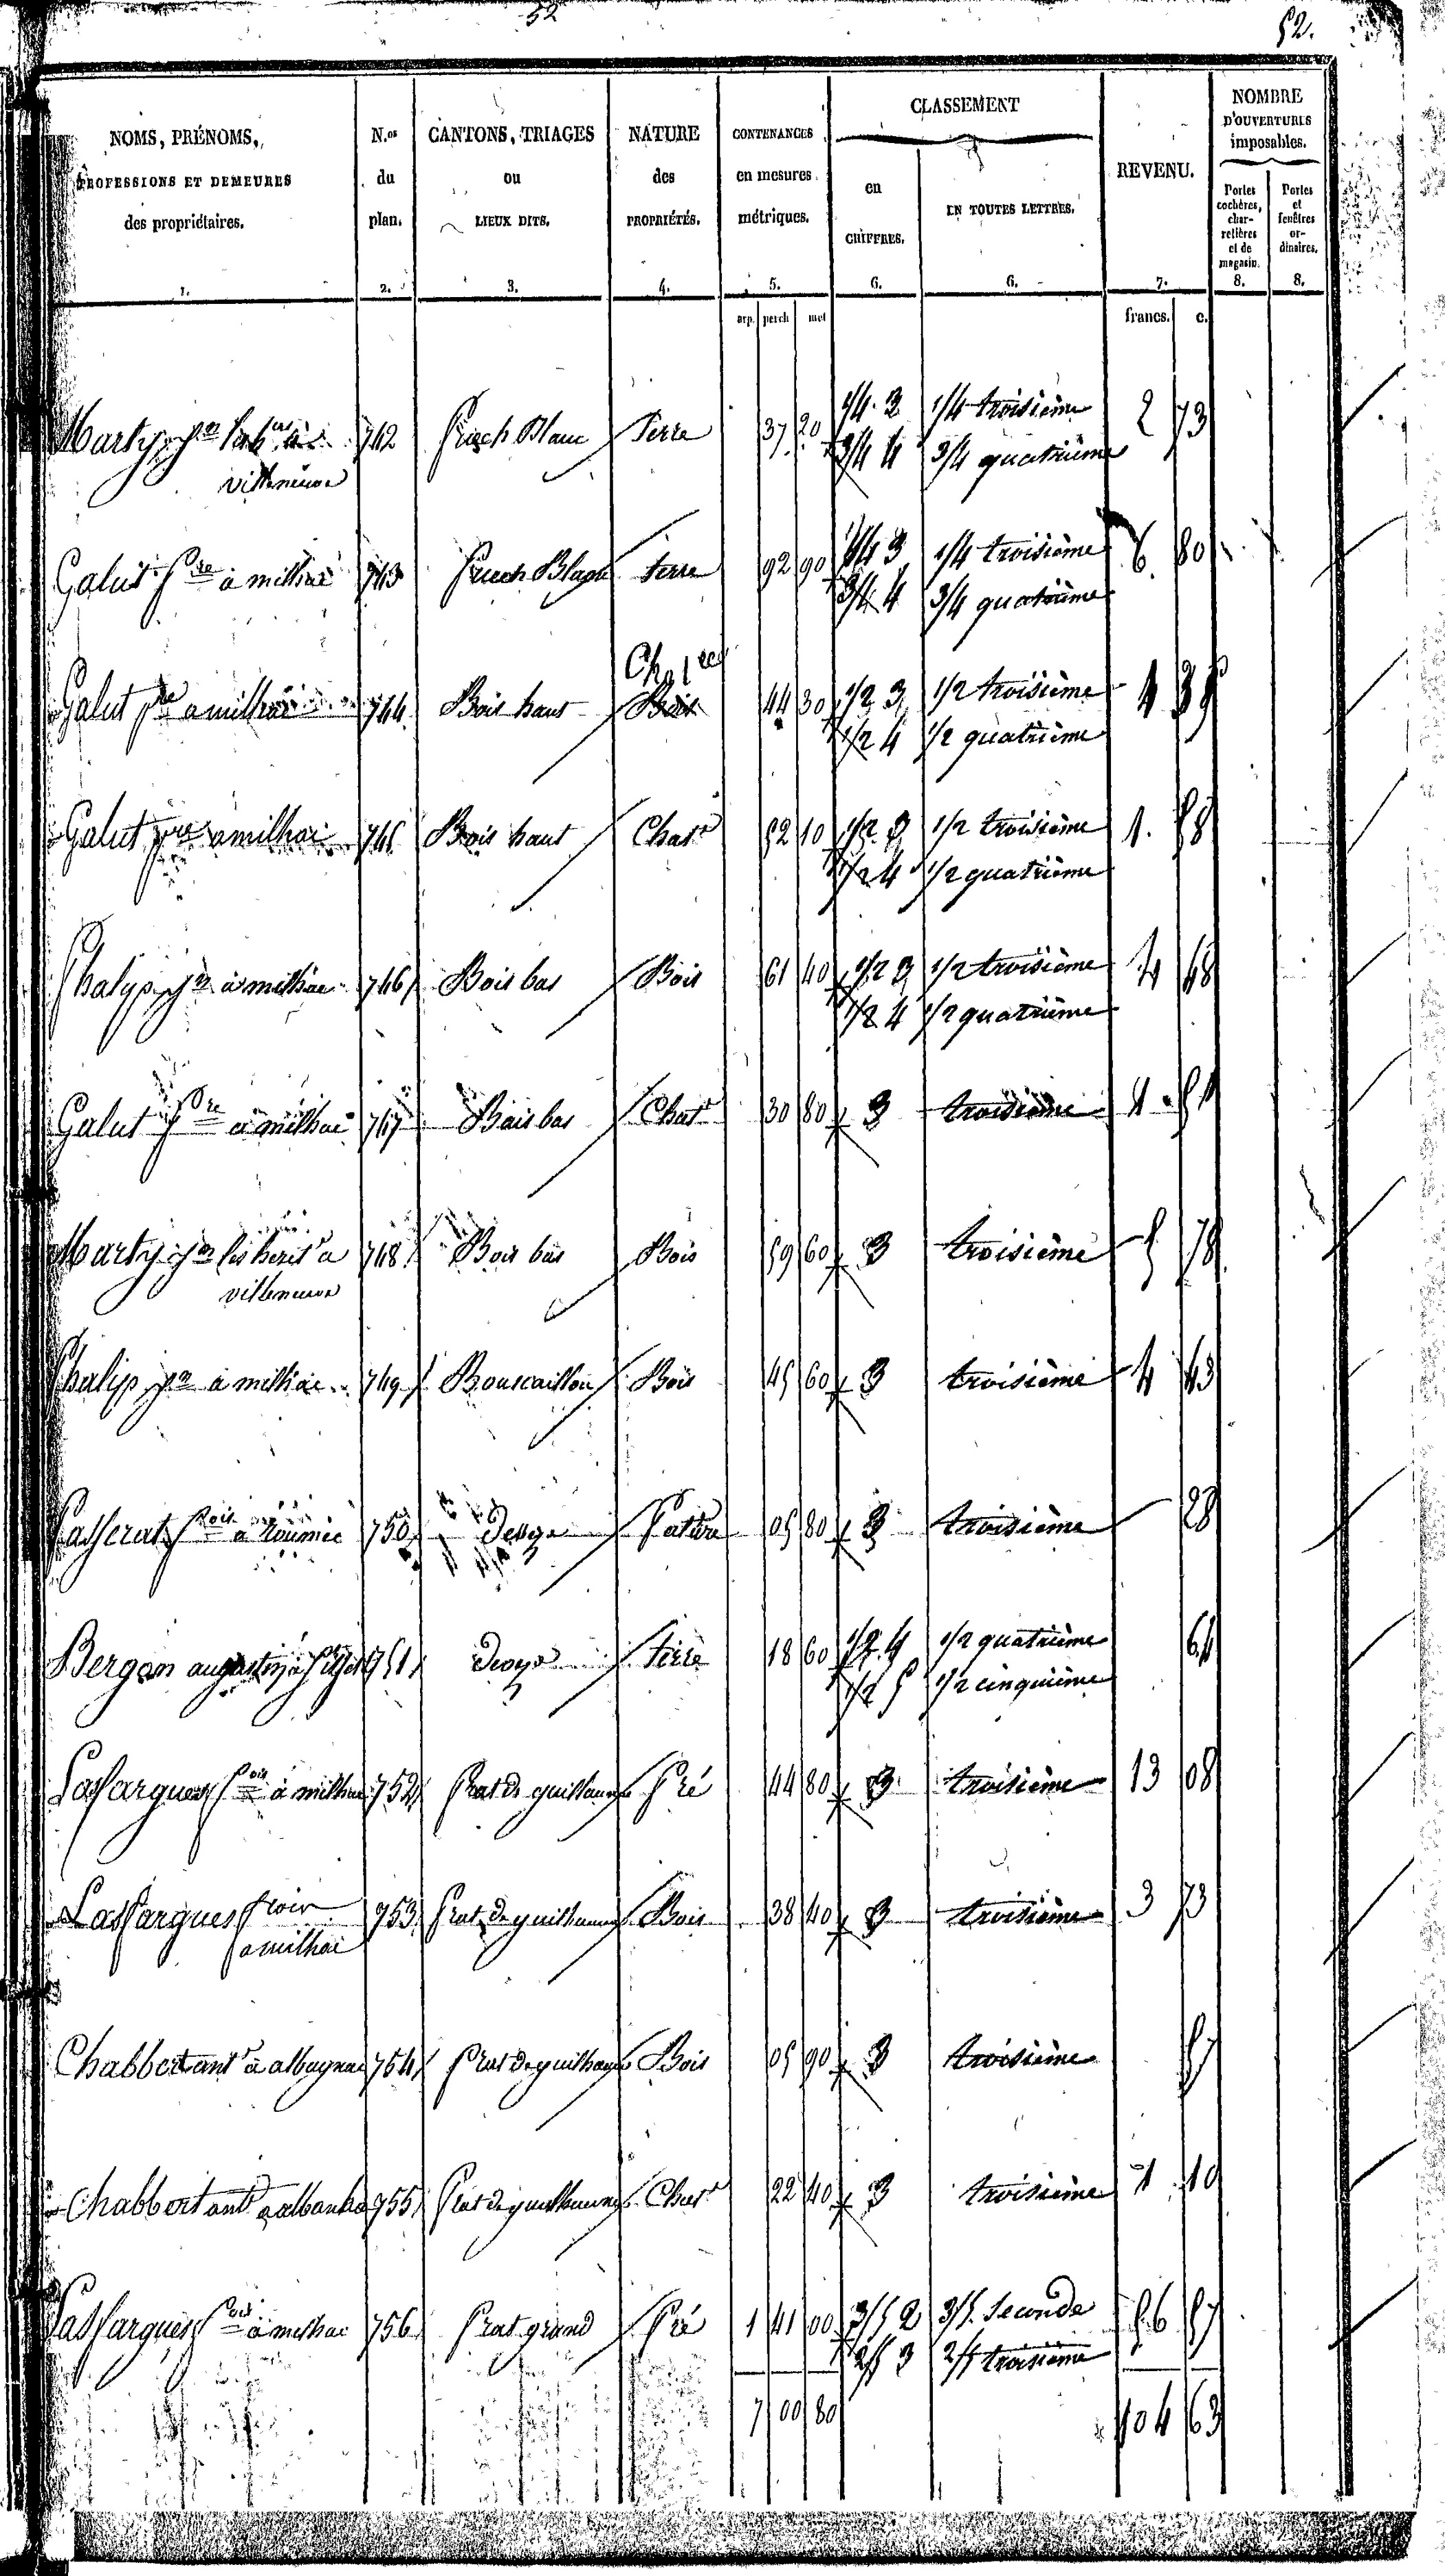 52
52.
NOMS, PRÉNOMS,
PROFESSIONS ET DEMEURES
des propriétaires.
1.
N.os
du
plan.
2.
CANTONS, TRIAGES
ou
LIEUX DITS.
3.
NATURE
des
PROPRIÉTÉS.
4.
CONTENANCES
en mesures
métriques.
5.
CLASSEMENT
en
CHIFFRES.
6.
EN TOUTES LETTRES.
6.
REVENU.
7.
NOMBRE
D'OUVERTURES
imposables.
Portes
cochères,
char-
retières
et de
magasin.
8.
Portes
et
fenêtres
or-
dinaires.
8.
arp. perch met
francs. c.
Marty à 742 Puech Blanc Terre 37 20 1/4 3 1/4 troisième 2 73
villeneuve 3/4 4 3/4 quatrième
Galut Pre à milhac 743 Puech Blanc terre 92 90 1/4 3 1/4 troisième 6 80
3/4 4 3/4 quatrième
Galut Pre a milhac 744 Bois haut Bois 44 30 1/2 3 1/2 troisième
1/2 4 1/2 quatrième
Galut Pre a milhac 745 Bois haut Chat 52 10 1/2 3 1/2 troisième 1. 58
1/2 4 1/2 quatrième
Chalip à milhac 746 Bois bas Bois 61 40 1/2 3 1/2 troisième 4 48
1/2 4 1/2 quatrième
Galut Pre à milhac 747 Bois bas Chat 30 80 3 troisième 1 51
Marty a 748 Bois bas Bois 59 60 3 troisième 5 78
villeneuve
Chalip à milhac 749 Bouscaillou Bois 45 60 3 troisième 4 43
Passerat à 750 Deveze Patur 05 80 3 troisième 28
Bergon augustin à 751 Deveze Terre 18 60 1/2 4 1/2 quatrième 64
1/2 5 1/2 cinquième
Lasfargues à milhac 752 Prat de guillaume Pré 44 80 3 troisième 13 08
Lasfargues 753 Prat de guillaume Bois 38 40 3 troisième 3 73
a milhac
Chabbert ant à 754 Prat de guillaume Bois 05 90 3 troisième 57
Chabbert ant a 755 Prat de guillaume Chat 22 40 3 troisième 1 10
Lasfargues à milhac 756 Prat grand Pré 1 41 00 3/5 2 3/5 seconde 56 57
2/5 3 2/5 troisième
7 00 80 104 63